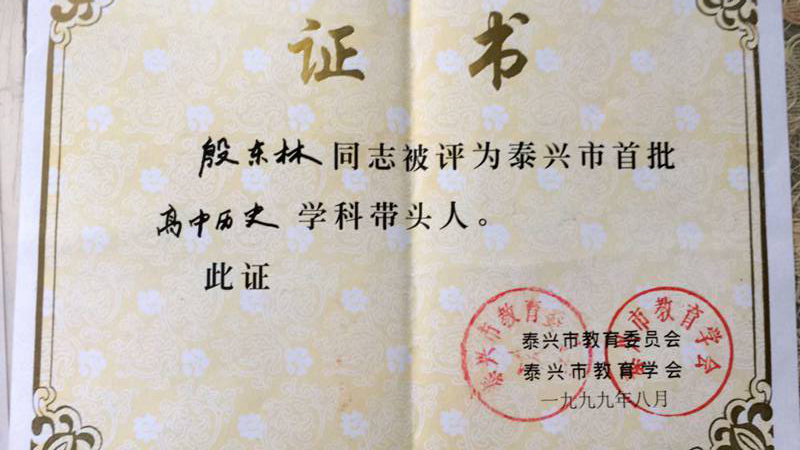 证 书
殷东林同志被评为泰兴市首批
高中历史 学科带头人。
此证
泰兴市教育委员会
泰兴市教育学会
一九九九年八月
泰兴市教育
泰兴市教育学会